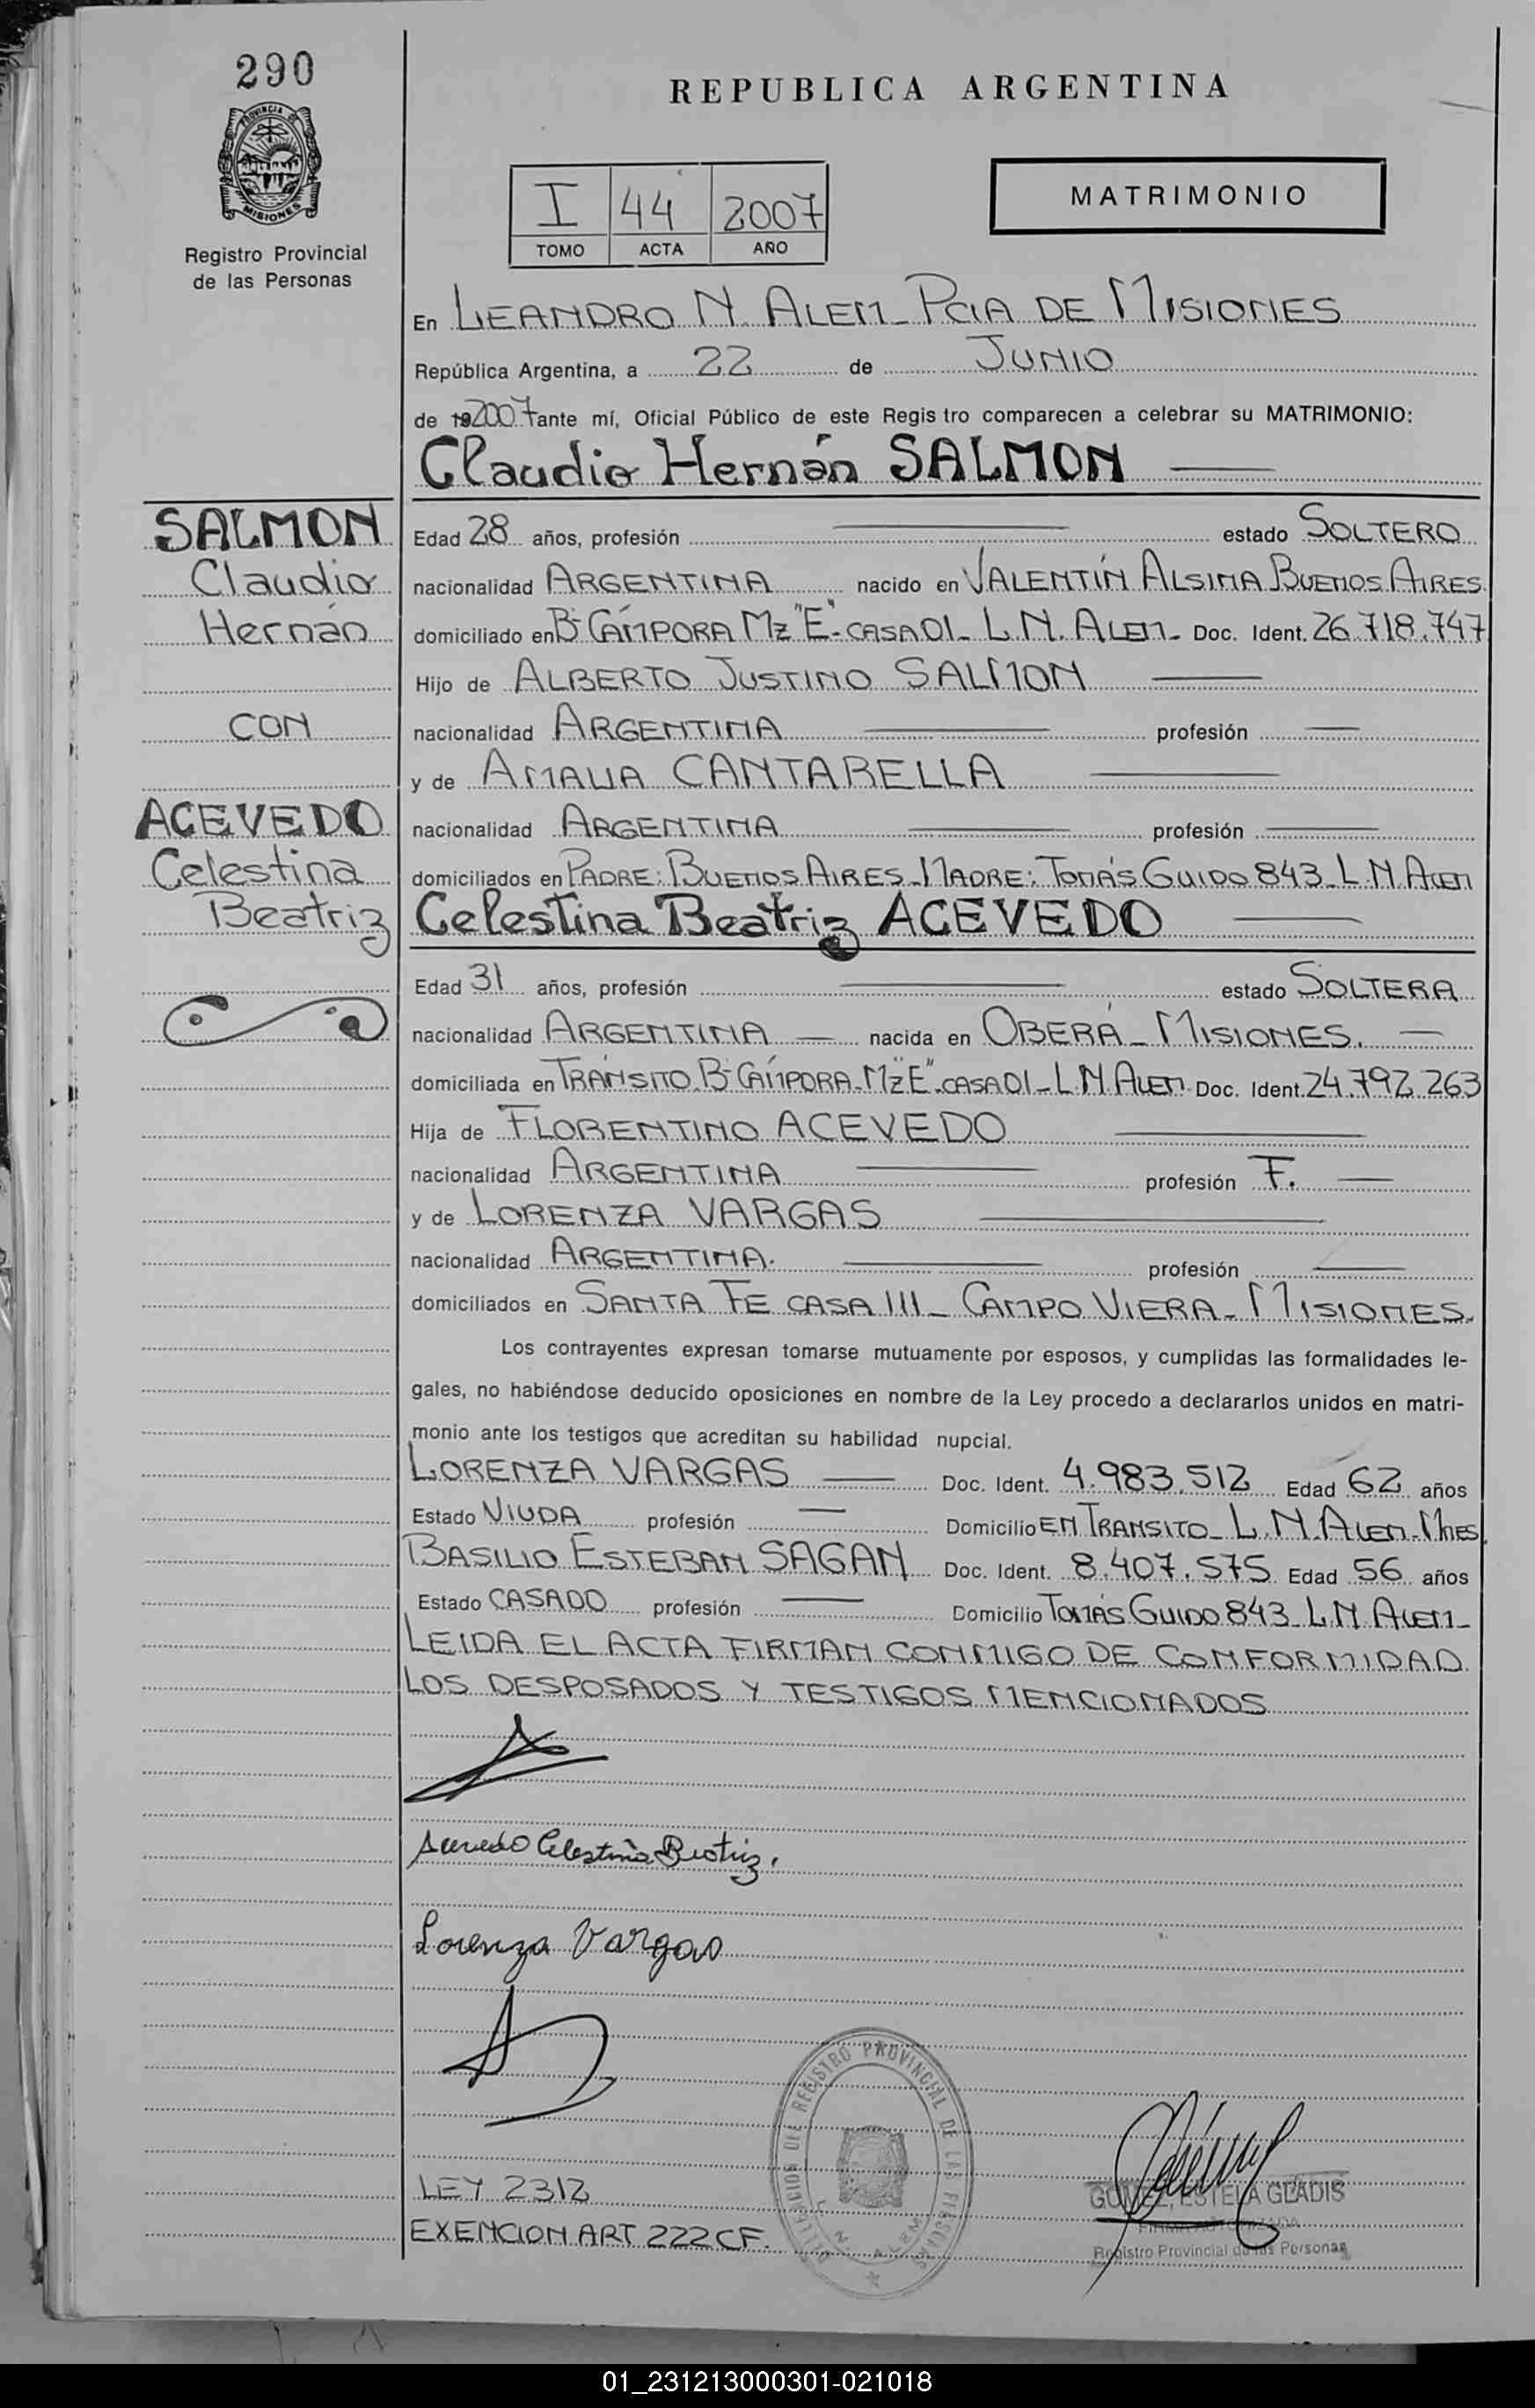 290
REPUBLICA ARGENTINA
PROVINCIA DE
MISIONES
Registro Provincial
de las Personas
I 44 2007
TOMO ACTA AÑO
MATRIMONIO
En LEANDRO N. ALEM - PCIA DE MISIONES
República Argentina, a 22 de JUNIO
de 192007 ante mí, Oficial Público de este Regis tro comparecen a celebrar su MATRIMONIO:
Claudio Hernán SALMON
SALMON
Claudio
Hernán
CON
ACEVEDO
Celestina
Beatriz
Edad 28 años, profesión estado SOLTERO
nacionalidad ARGENTINA nacido en VALENTÍN ALSINA BUENOS AIRES
domiciliado en Bº CÁMPORA MZ "E"- CASA 01- L.N. ALEM- Doc. Ident. 26.718.747
Hijo de ALBERTO JUSTINO SALMON
nacionalidad ARGENTINA profesión
y de AMALIA CANTARELLA
nacionalidad ARGENTINA profesión
domiciliados en PADRE: BUENOS AIRES - MADRE: TOMÁS GUIDO 843 - L.N. ALEM
Celestina Beatriz ACEVEDO
Edad 31 años, profesión estado SOLTERA
nacionalidad ARGENTINA nacida en OBERÁ - MISIONES.
domiciliada en TRÁNSITO Bº CÁMPORA - MZ "E" - CASA 01 - L.N. ALEM Doc. Ident. 24.792.263
Hija de FLORENTINO ACEVEDO
nacionalidad ARGENTINA profesión F.
y de LORENZA VARGAS
nacionalidad ARGENTINA. profesión
domiciliados en SANTA FE CASA 111 - CAMPO VIERA - MISIONES.
Los contrayentes expresan tomarse mutuamente por esposos, y cumplidas las formalidades le-
gales, no habiéndose deducido oposiciones en nombre de la Ley procedo a declararlos unidos en matri-
monio ante los testigos que acreditan su habilidad nupcial.
LORENZA VARGAS Doc. Ident. 4.983.512 Edad 62 años
Estado VIUDA profesión Domicilio EN TRANSITO - L.N. ALEM - MNES
BASILIO ESTEBAN SAGAN Doc. Ident. 8.407.575 Edad 56 años
Estado CASADO profesión Domicilio TOMÁS GUIDO 843 - L.N. ALEM -
LEIDA EL ACTA FIRMAN CONMIGO DE CONFORMIDAD
LOS DESPOSADOS Y TESTIGOS MENCIONADOS
Acevedo Celestina Beatriz.
Lorenza Vargas
DELEGACION DEL REGISTRO PROVINCIAL DE LAS PERSONAS
L. N. ALEM
LEY 2312
EXENCION ART 222 CF.
GOMEZ, ESTELA GLADIS
FIRMA AUTORIZADA
Registro Provincial de las Personas
01_231213000301-021018